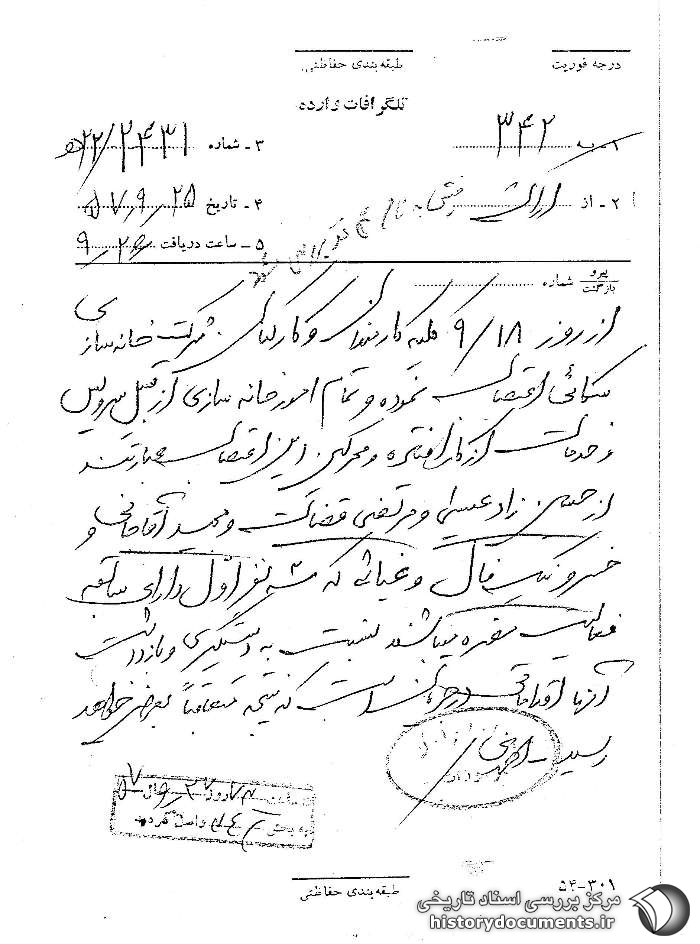 درجه فوریت
طبقه‌بندی حفاظتی
تلگرافات وارده
۱ـ به ۳۴۲
۳ ـ شماره ۲۲/۲۴۳۱ﻫ
۲ ـ از اراک
۴ ـ تاریخ ۵۷/۹/۲۵
۵ ـ ساعت دریافت
پیرو
بازگشت شماره
از روز ۹/۱۸ کلیه کارمندان و کارکنان شرکت خانه سازی
اعتصاب نموده و تمام امور خانه سازی از قبیل سرویس
و خدمات از کار افتاده و محرکین این اعتصاب عبارتند
از حسین زاد عیسی و مرتضی قضات و مجید آقاخانی و
خسرو نیک فال و غیاثی که سه نفر اول دارای سابقه
فعالیت مضره میباشند نسبت به دستگیری و بازداشت
آنها اقداماتی در جریان است که نتیجه متعاقباً بعرض خواهد
رسید ـ
طبقه‌بندی حفاظتی
۵۴-۳۰۱
مرکز بررسی اسناد تاریخی
historydocuments.ir